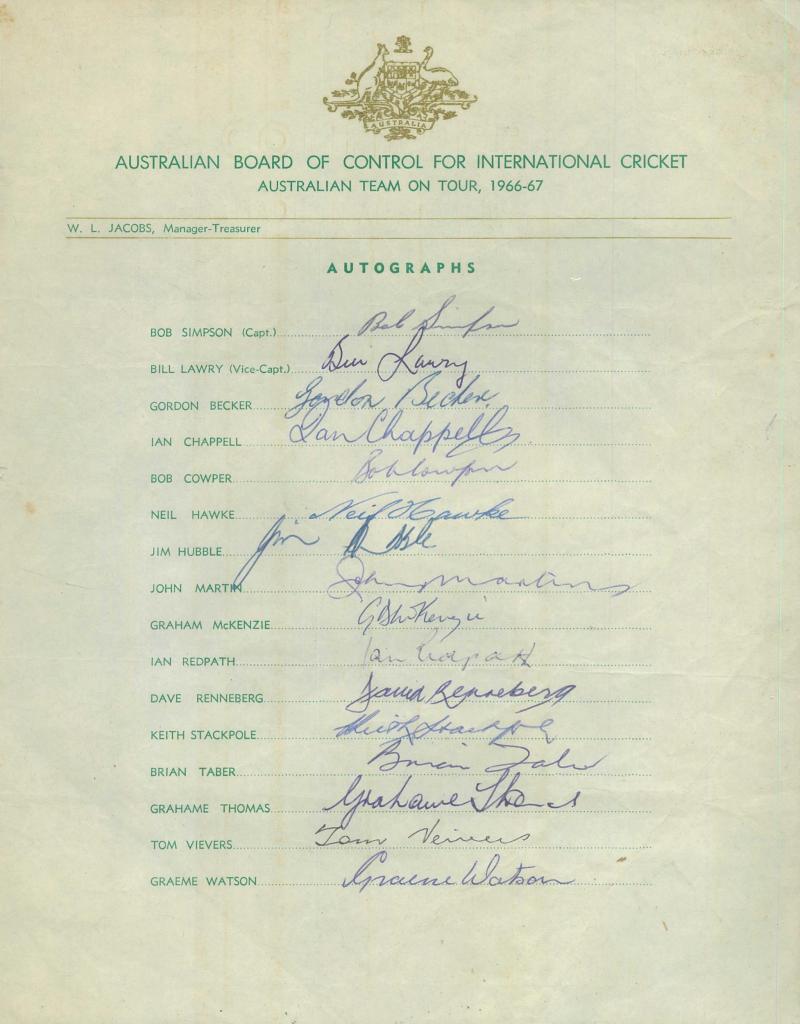 AUSTRALIA
AUSTRALIAN BOARD OF CONTROL FOR INTERNATIONAL CRICKET
AUSTRALIAN TEAM ON TOUR, 1966-67
W. L. JACOBS, Manager-Treasurer
AUTOGRAPHS
BOB SIMPSON (Capt.) Bob Simpson
BILL LAWRY (Vice-Capt.) Bill Lawry
GORDON BECKER Gordon Becker
IAN CHAPPELL Ian Chappell
BOB COWPER Bob Cowper
NEIL HAWKE Neil Hawke
JIM HUBBLE Jim
JOHN MARTIN John Martin
GRAHAM McKENZIE G D McKenzie
IAN REDPATH Ian Redpath
DAVE RENNEBERG David Renneberg
KEITH STACKPOLE Keith Stackpole
BRIAN TABER Brian Taber
GRAHAME THOMAS Grahame Thomas
TOM VIEVERS Tom Veivers
GRAEME WATSON Graeme Watson